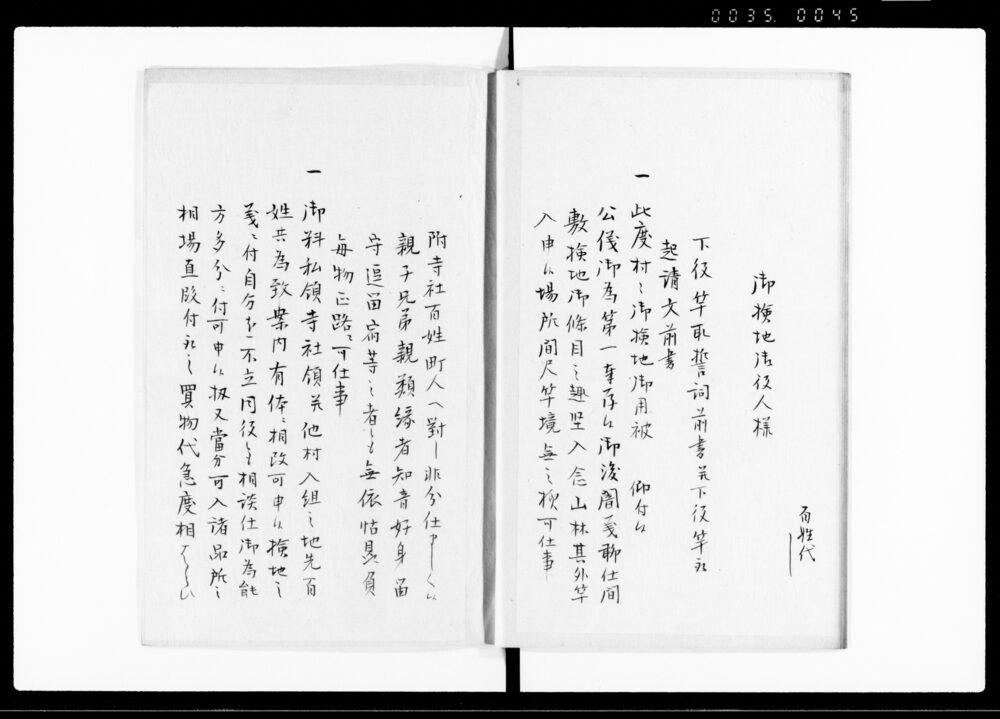 0035. 0045
百姓代
御検地御役人様
下役竿取誓詞前書并下役竿取
起請文前書
一 此度村々御検地御用被 仰付候
公儀御為第一奉存候御後闇義聊仕間
敷検地御條目之趣堅入念山林其外竿
入申候場所間尺竿境無之様可仕事
附寺社百姓町人へ對し非分仕申
親子兄弟親類縁者知音好身留
守逗留宿等之者とも無依怙贔負
毎物正路ニ可仕事
一 御料私領寺社領并他村入組之地先百
姓共為致案内有体ニ相改可申候検地之
義ニ付自分ニ不立同役とも相談仕御為能
方多分ニ付可申候扱又當分可入諸品所々
相場直段付取之買物代急度相